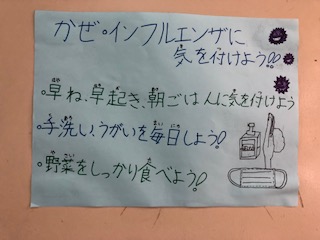 かぜ・インフルエンザに
気を付けよう!!
・早ね、早起き、朝ごはんに気を付けよう
・手洗い、うがいを毎日しよう!
・野菜をしっかり食べよう!